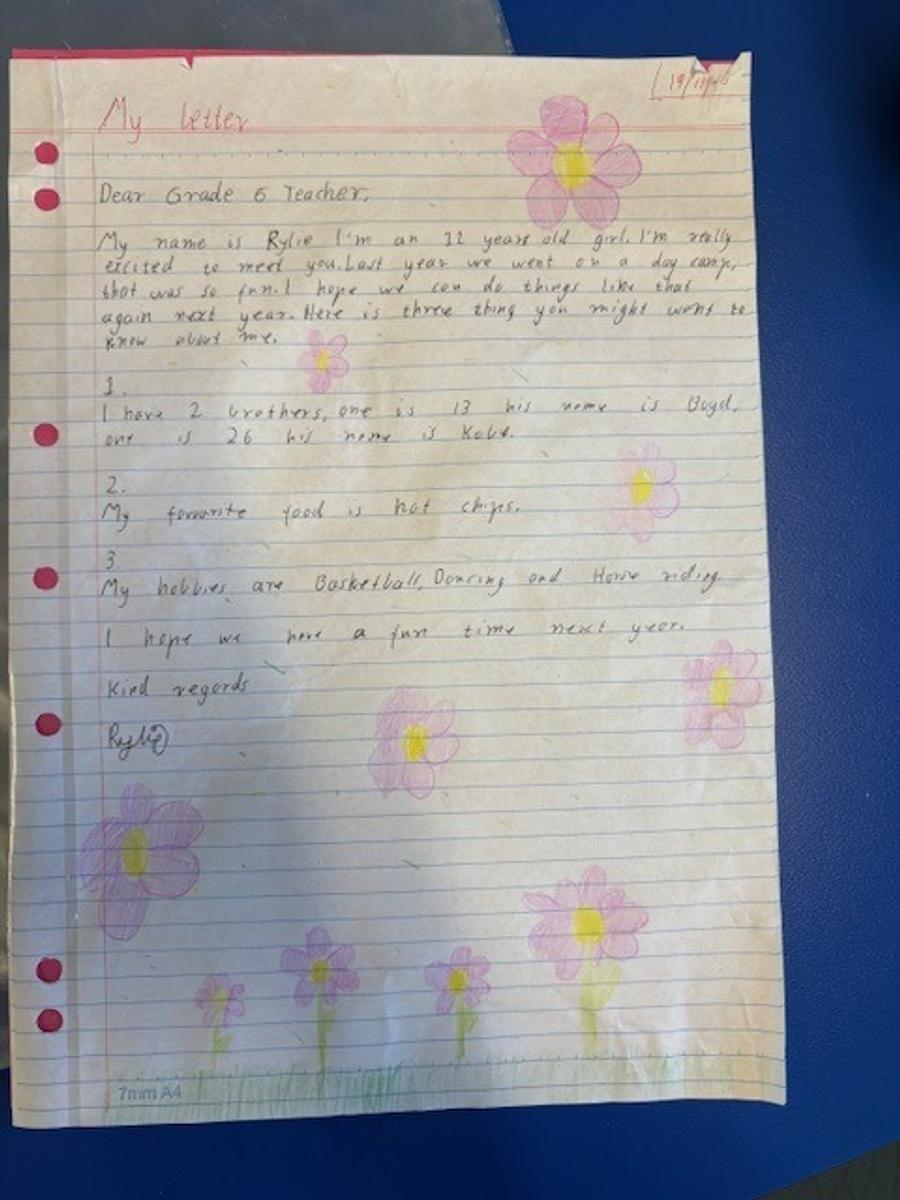 My letter
Dear Grade 6 Teacher,
My name is Rylie I'm an 12 years old girl. I'm really
excited to meet you. Last year we went on a day camp,
that was so fun. I hope we can do things like that
again next year. Here is three thing you might want to
know about me.
1.
I have 2 brothers, one is 13 his name is Boyd,
one is 26 his name is Kobe.
2.
My favourite food is hot chips.
3.
My hobbies are Basketball, Dancing and Horse riding
I hope we have a fun time next year.
Kind regards
Rylie
7mm A4